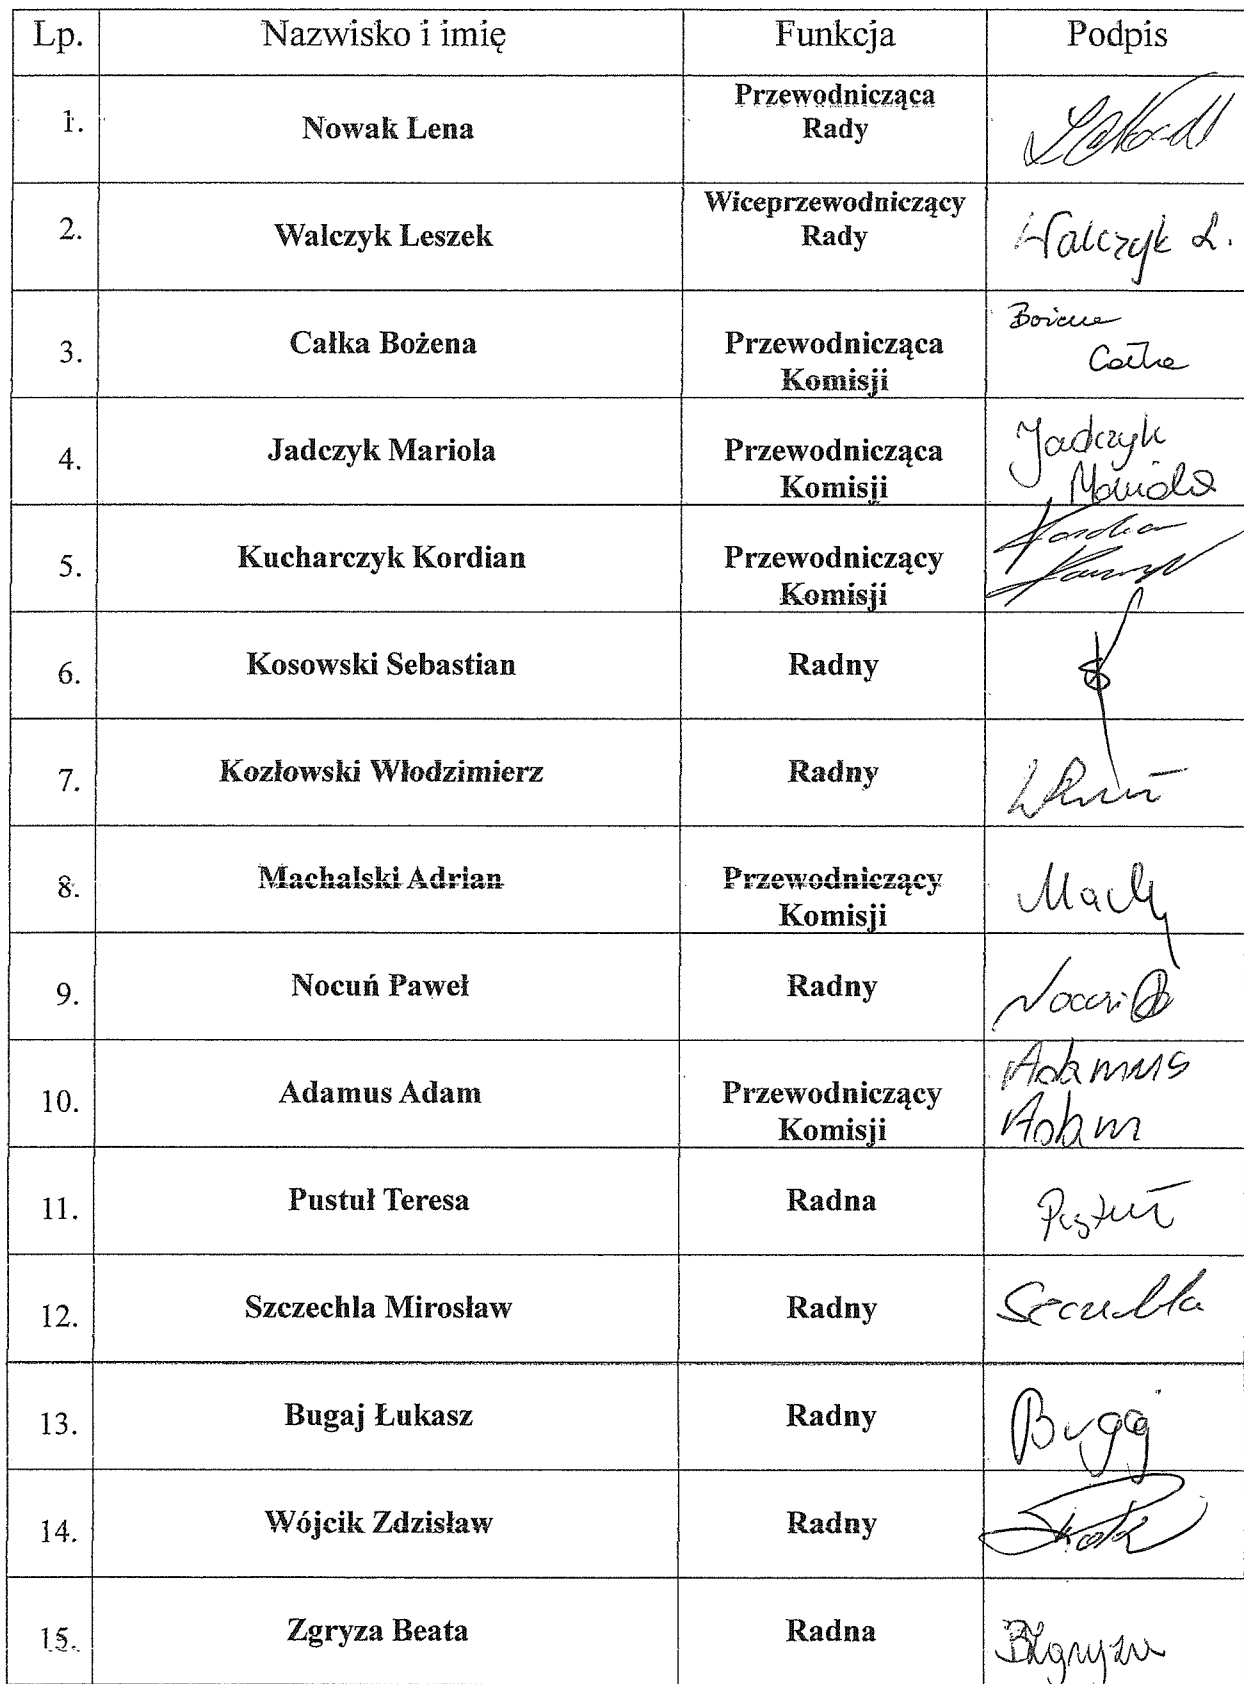 Lp. Nazwisko i imię Funkcja Podpis
1. Nowak Lena Przewodnicząca Rady
2. Walczyk Leszek Wiceprzewodniczący Rady Walczyk L.
3. Całka Bożena Przewodnicząca Komisji Bożena Całka
4. Jadczyk Mariola Przewodnicząca Komisji Jadczyk Mariola
5. Kucharczyk Kordian Przewodniczący Komisji Kordian
6. Kosowski Sebastian Radny
7. Kozłowski Włodzimierz Radny
8. Machalski Adrian Przewodniczący Komisji
9. Nocuń Paweł Radny Nocuń
10. Adamus Adam Przewodniczący Komisji Adamus Adam
11. Pustuł Teresa Radna Pustuł
12. Szczechla Mirosław Radny
13. Bugaj Łukasz Radny Bugaj
14. Wójcik Zdzisław Radny
15. Zgryza Beata Radna BZgryza